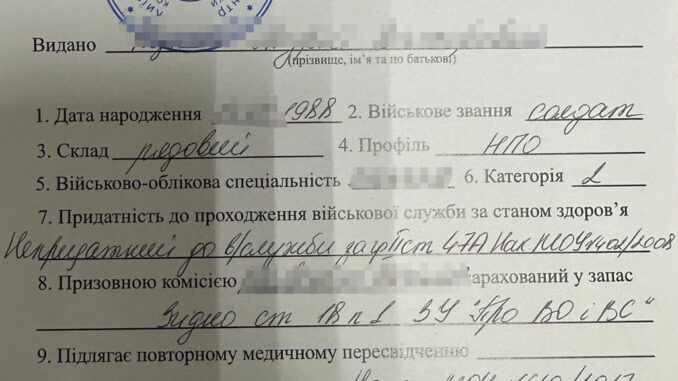 Видано
(прізвище, ім'я та по батькові)
1. Дата народження 1988 2. Військове звання солдат
3. Склад рядовий 4. Профіль НПО
5. Військово-облікова спеціальність 6. Категорія 2
7. Придатність до проходження військової служби за станом здоров'я
Непридатний до в/служби за ст 47А Нак МОУ 402/2008
8. Призовною комісією зарахований у запас
Згідно ст 18 п 1 ЗУ "Про ВО і ВС"
9. Підлягає повторному медичному пересвідченню